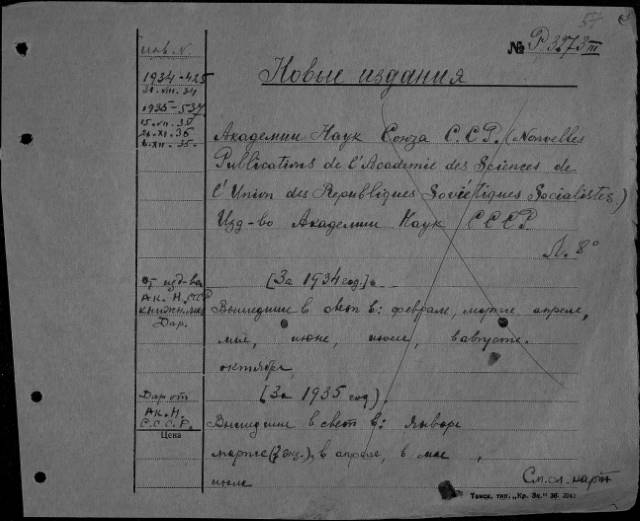 54
№ Р 3273 III
инв. N.
Новые издания
1934-425
21.VII.34
1935-537
15.VII.35
26.XI.35
8.XII.35.
Академии Наук Союза С.С.Р. (Nouvelles
Publications de l'Academie des Sciences de
l'Union des Republiques Soviétiques Socialistes)
Изд-во Академии Наук СССР
Л. 8°
От изд-ва
Ак. Н. СССР
книжн.
Дар.
[За 1934 год.]
Вышедшие в свет в: феврале, марте, апреле,
мае, июне, июле, в августе.
октябрь,
Дар от
Ак. Н.
С.С.С.Р.
Цена
[За 1935 год).
Вышедшие в свет в: январе
марте (2 экз.), в апреле, в мае,
июле
См. сл. карт
Тамск. тип. „Кр. Зн."